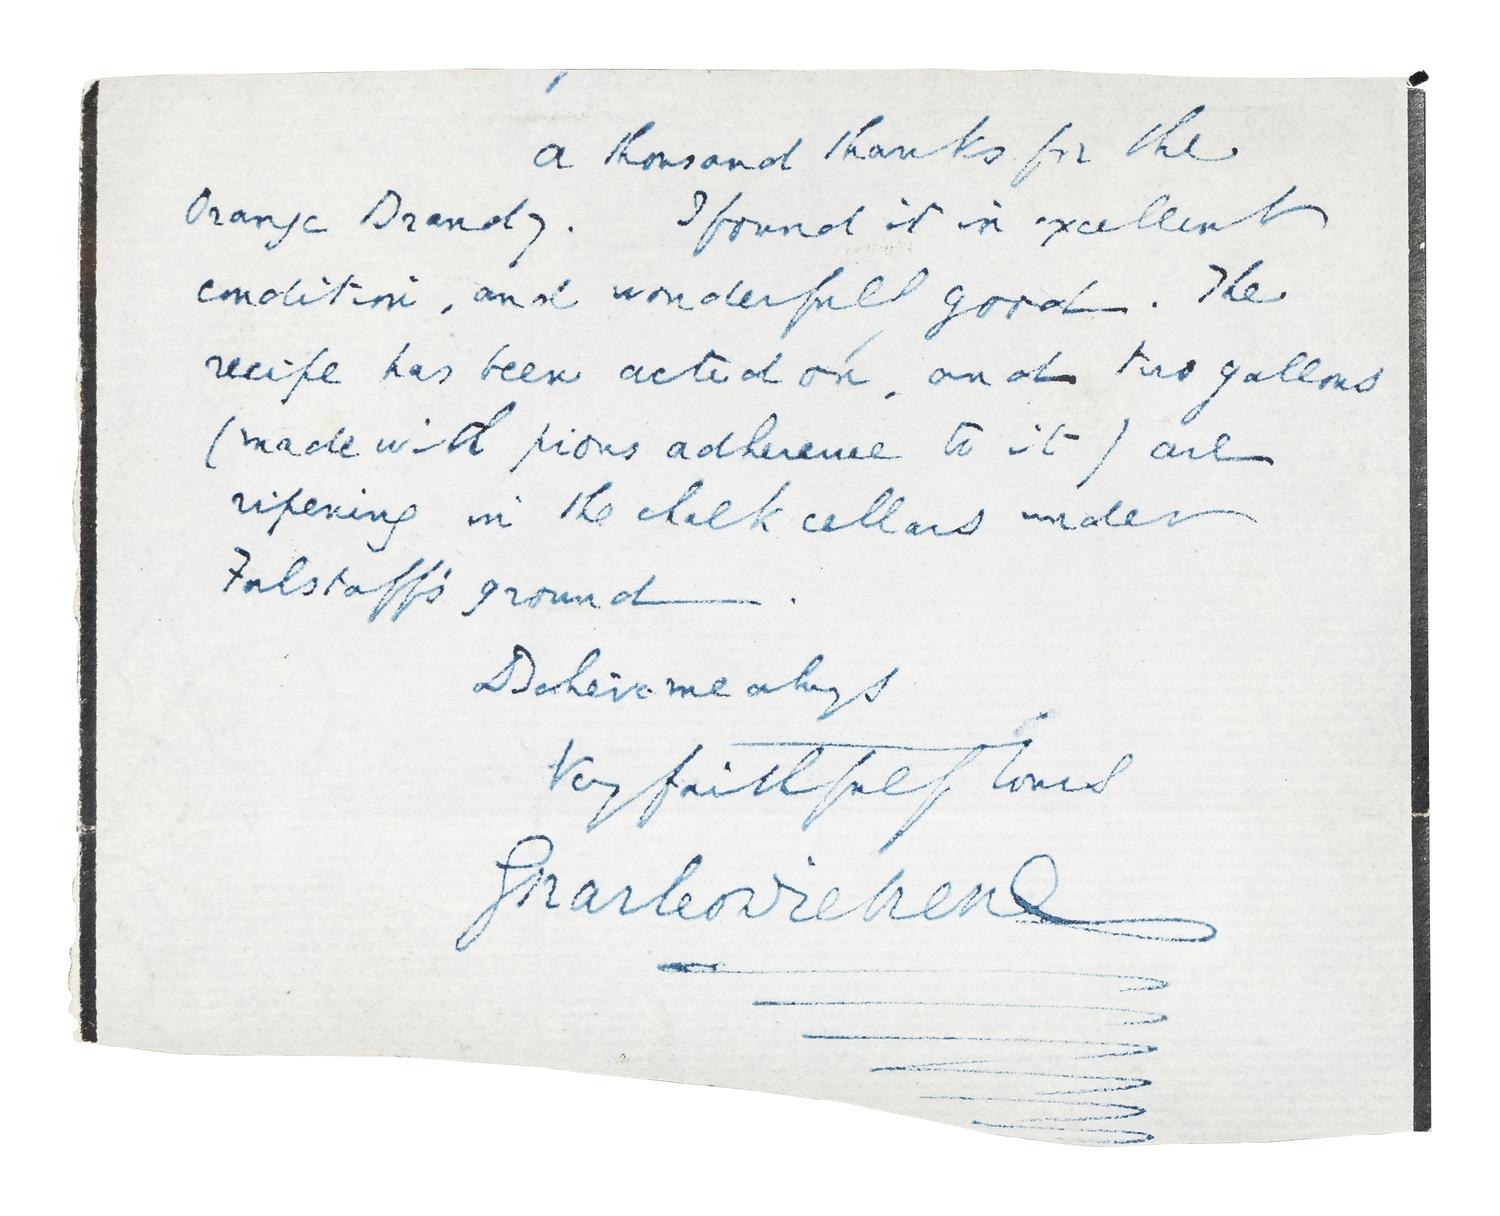 a thousand thanks for the
Orange Brandy. I found it in excellent
condition, and wonderfully good. The
recipe has been acted on, and two gallons
(made with pious adherence to it) are
ripening in the chalk cellars under
Falstaff's ground.
Believe me always
Very faithfully Yours
Charles Dickens